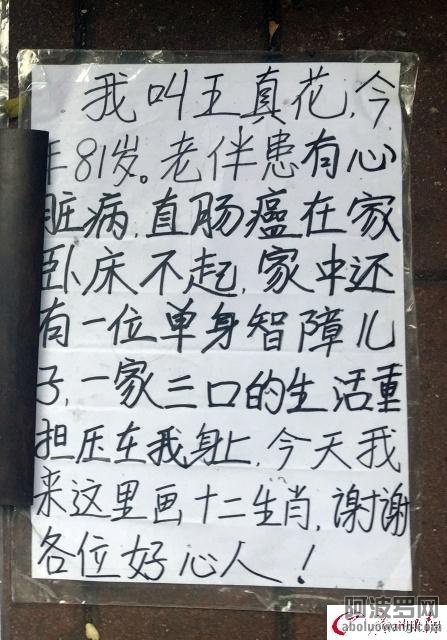 我叫王真花,今
年81岁。老伴患有心
脏病,直肠癌在家
卧床不起,家中还
有一位单身智障儿
子,一家三口的生活重
担压在我身上,今天我
来这里画十二生肖,谢谢
各位好心人!
阿波罗网
aboluowang.com